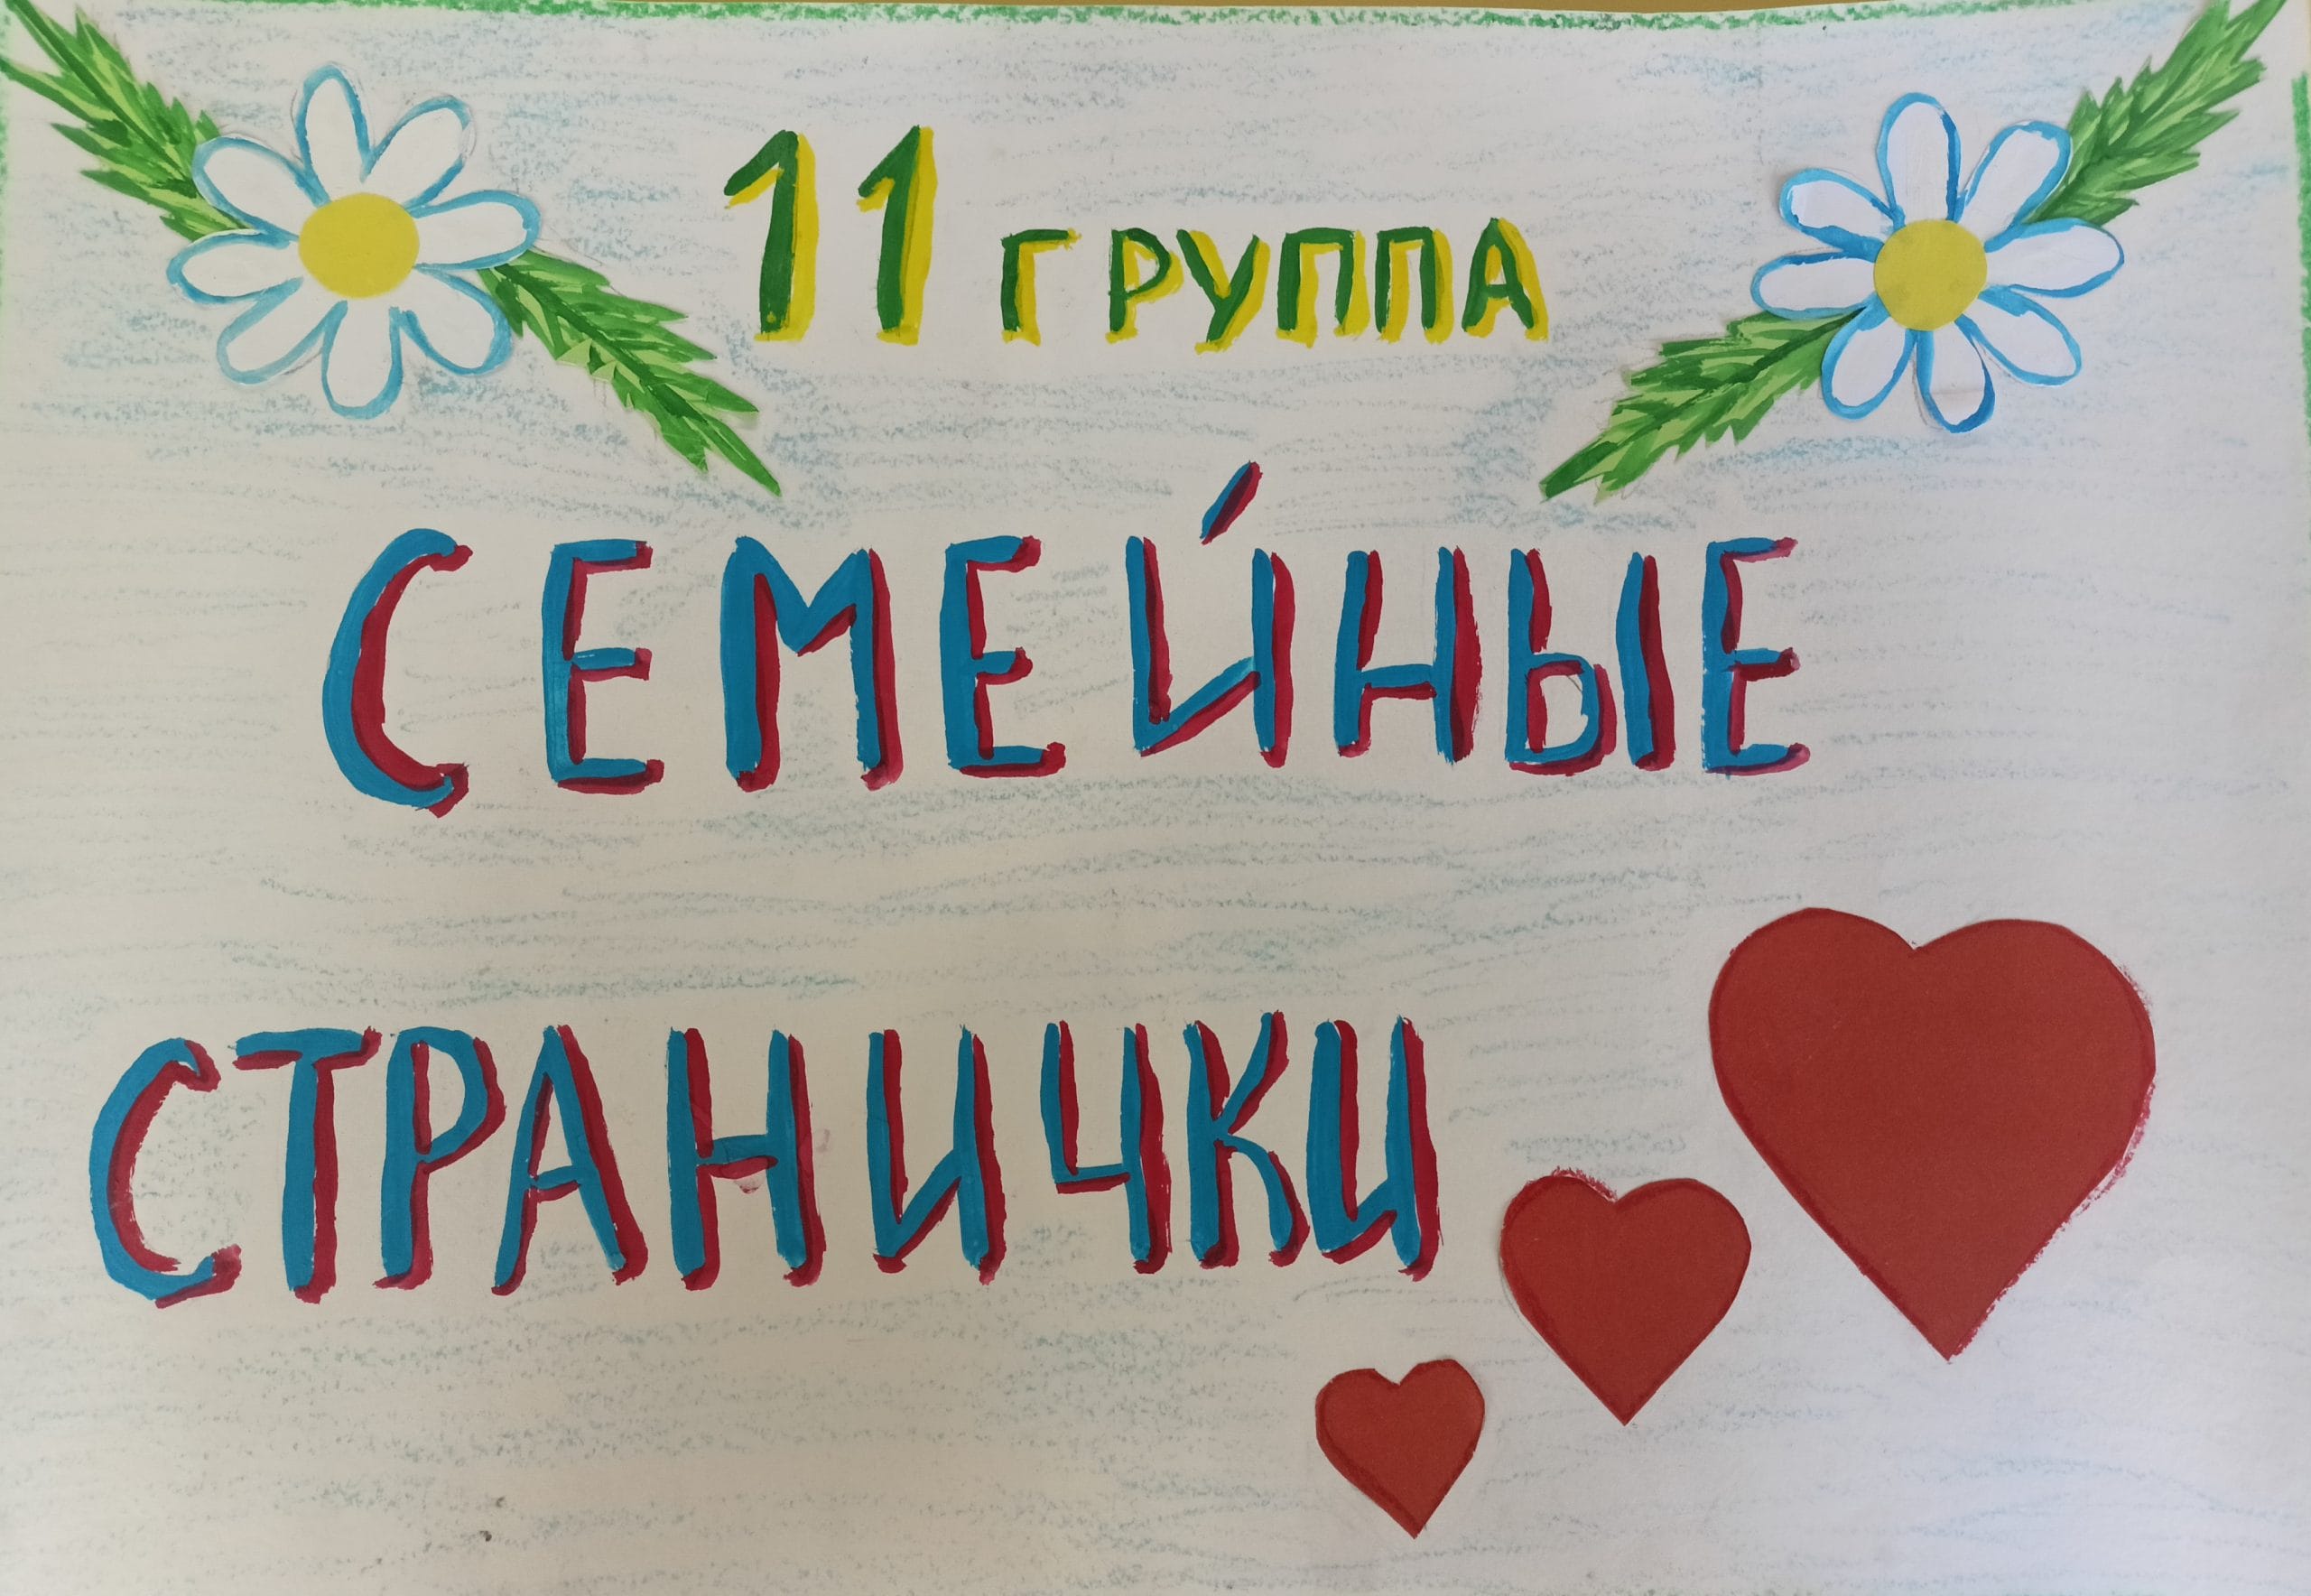 11 ГРУППА
СЕМЕЙНЫЕ
СТРАНИЧКИ